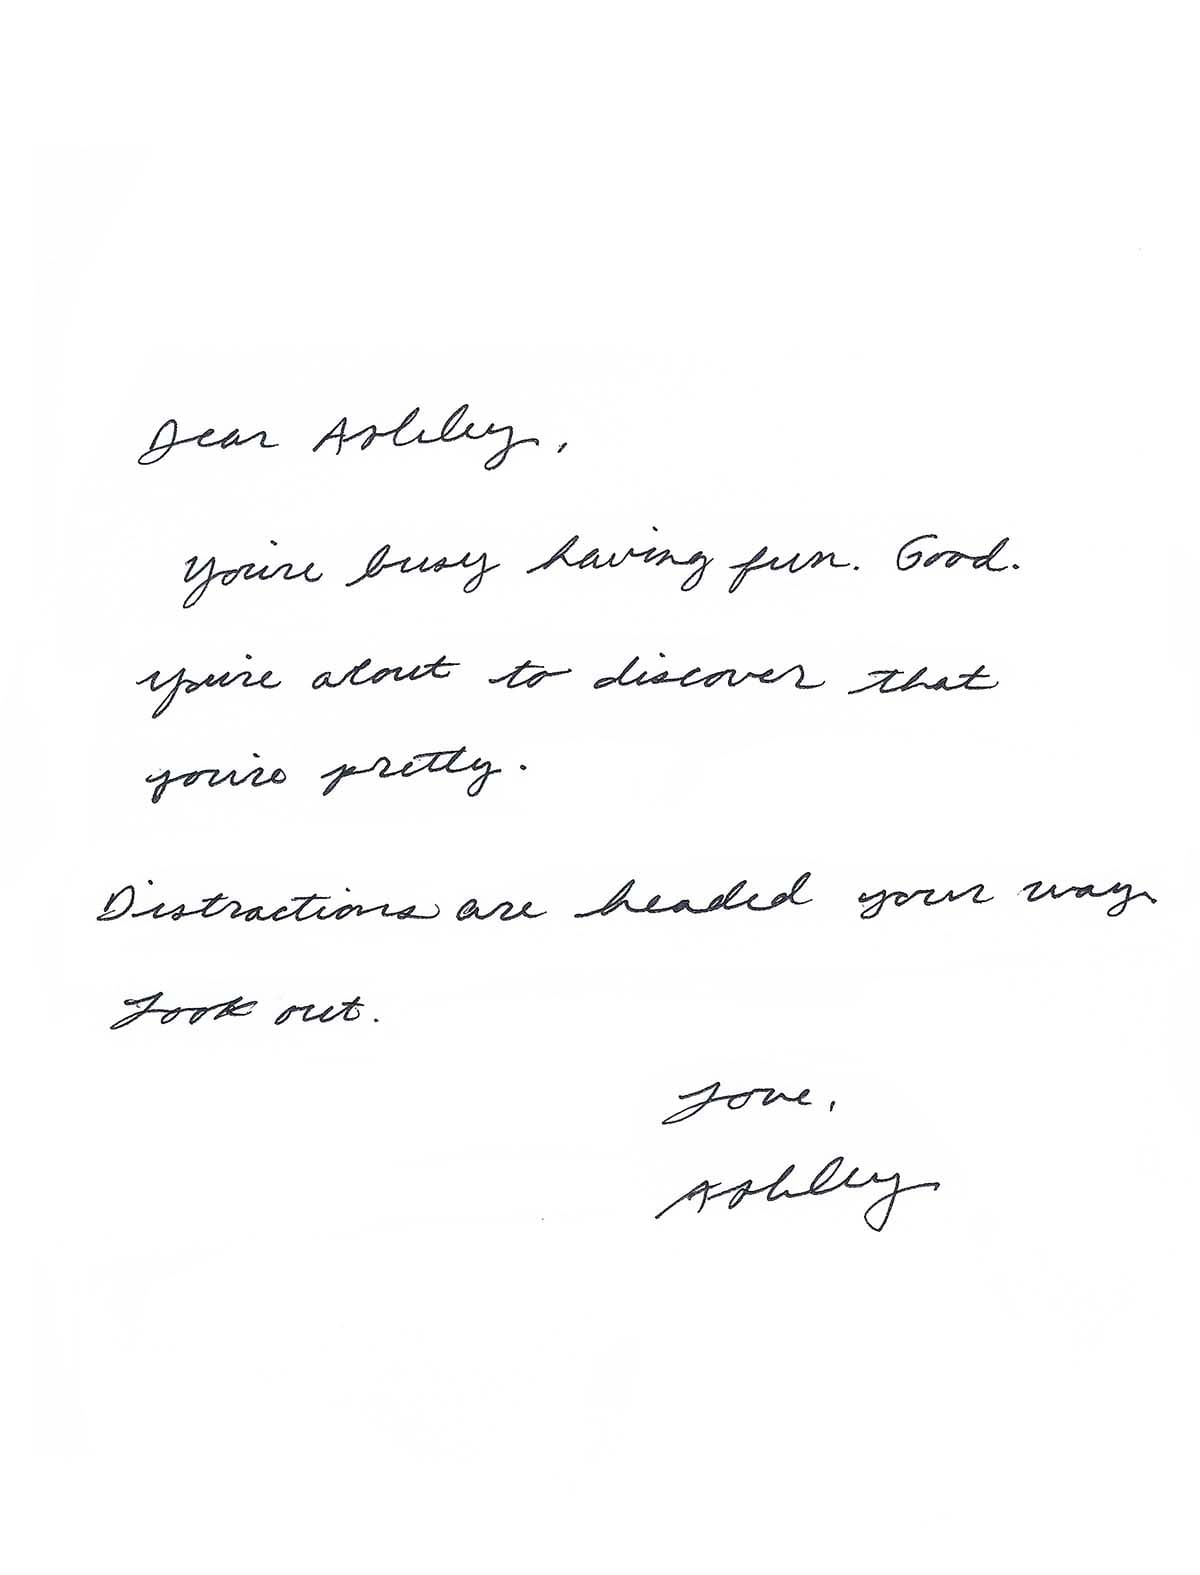 Dear Ashley,
You're busy having fun. Good.
you're about to discover that
you're pretty.
Distractions are headed your way.
Look out.
Love,
Ashley